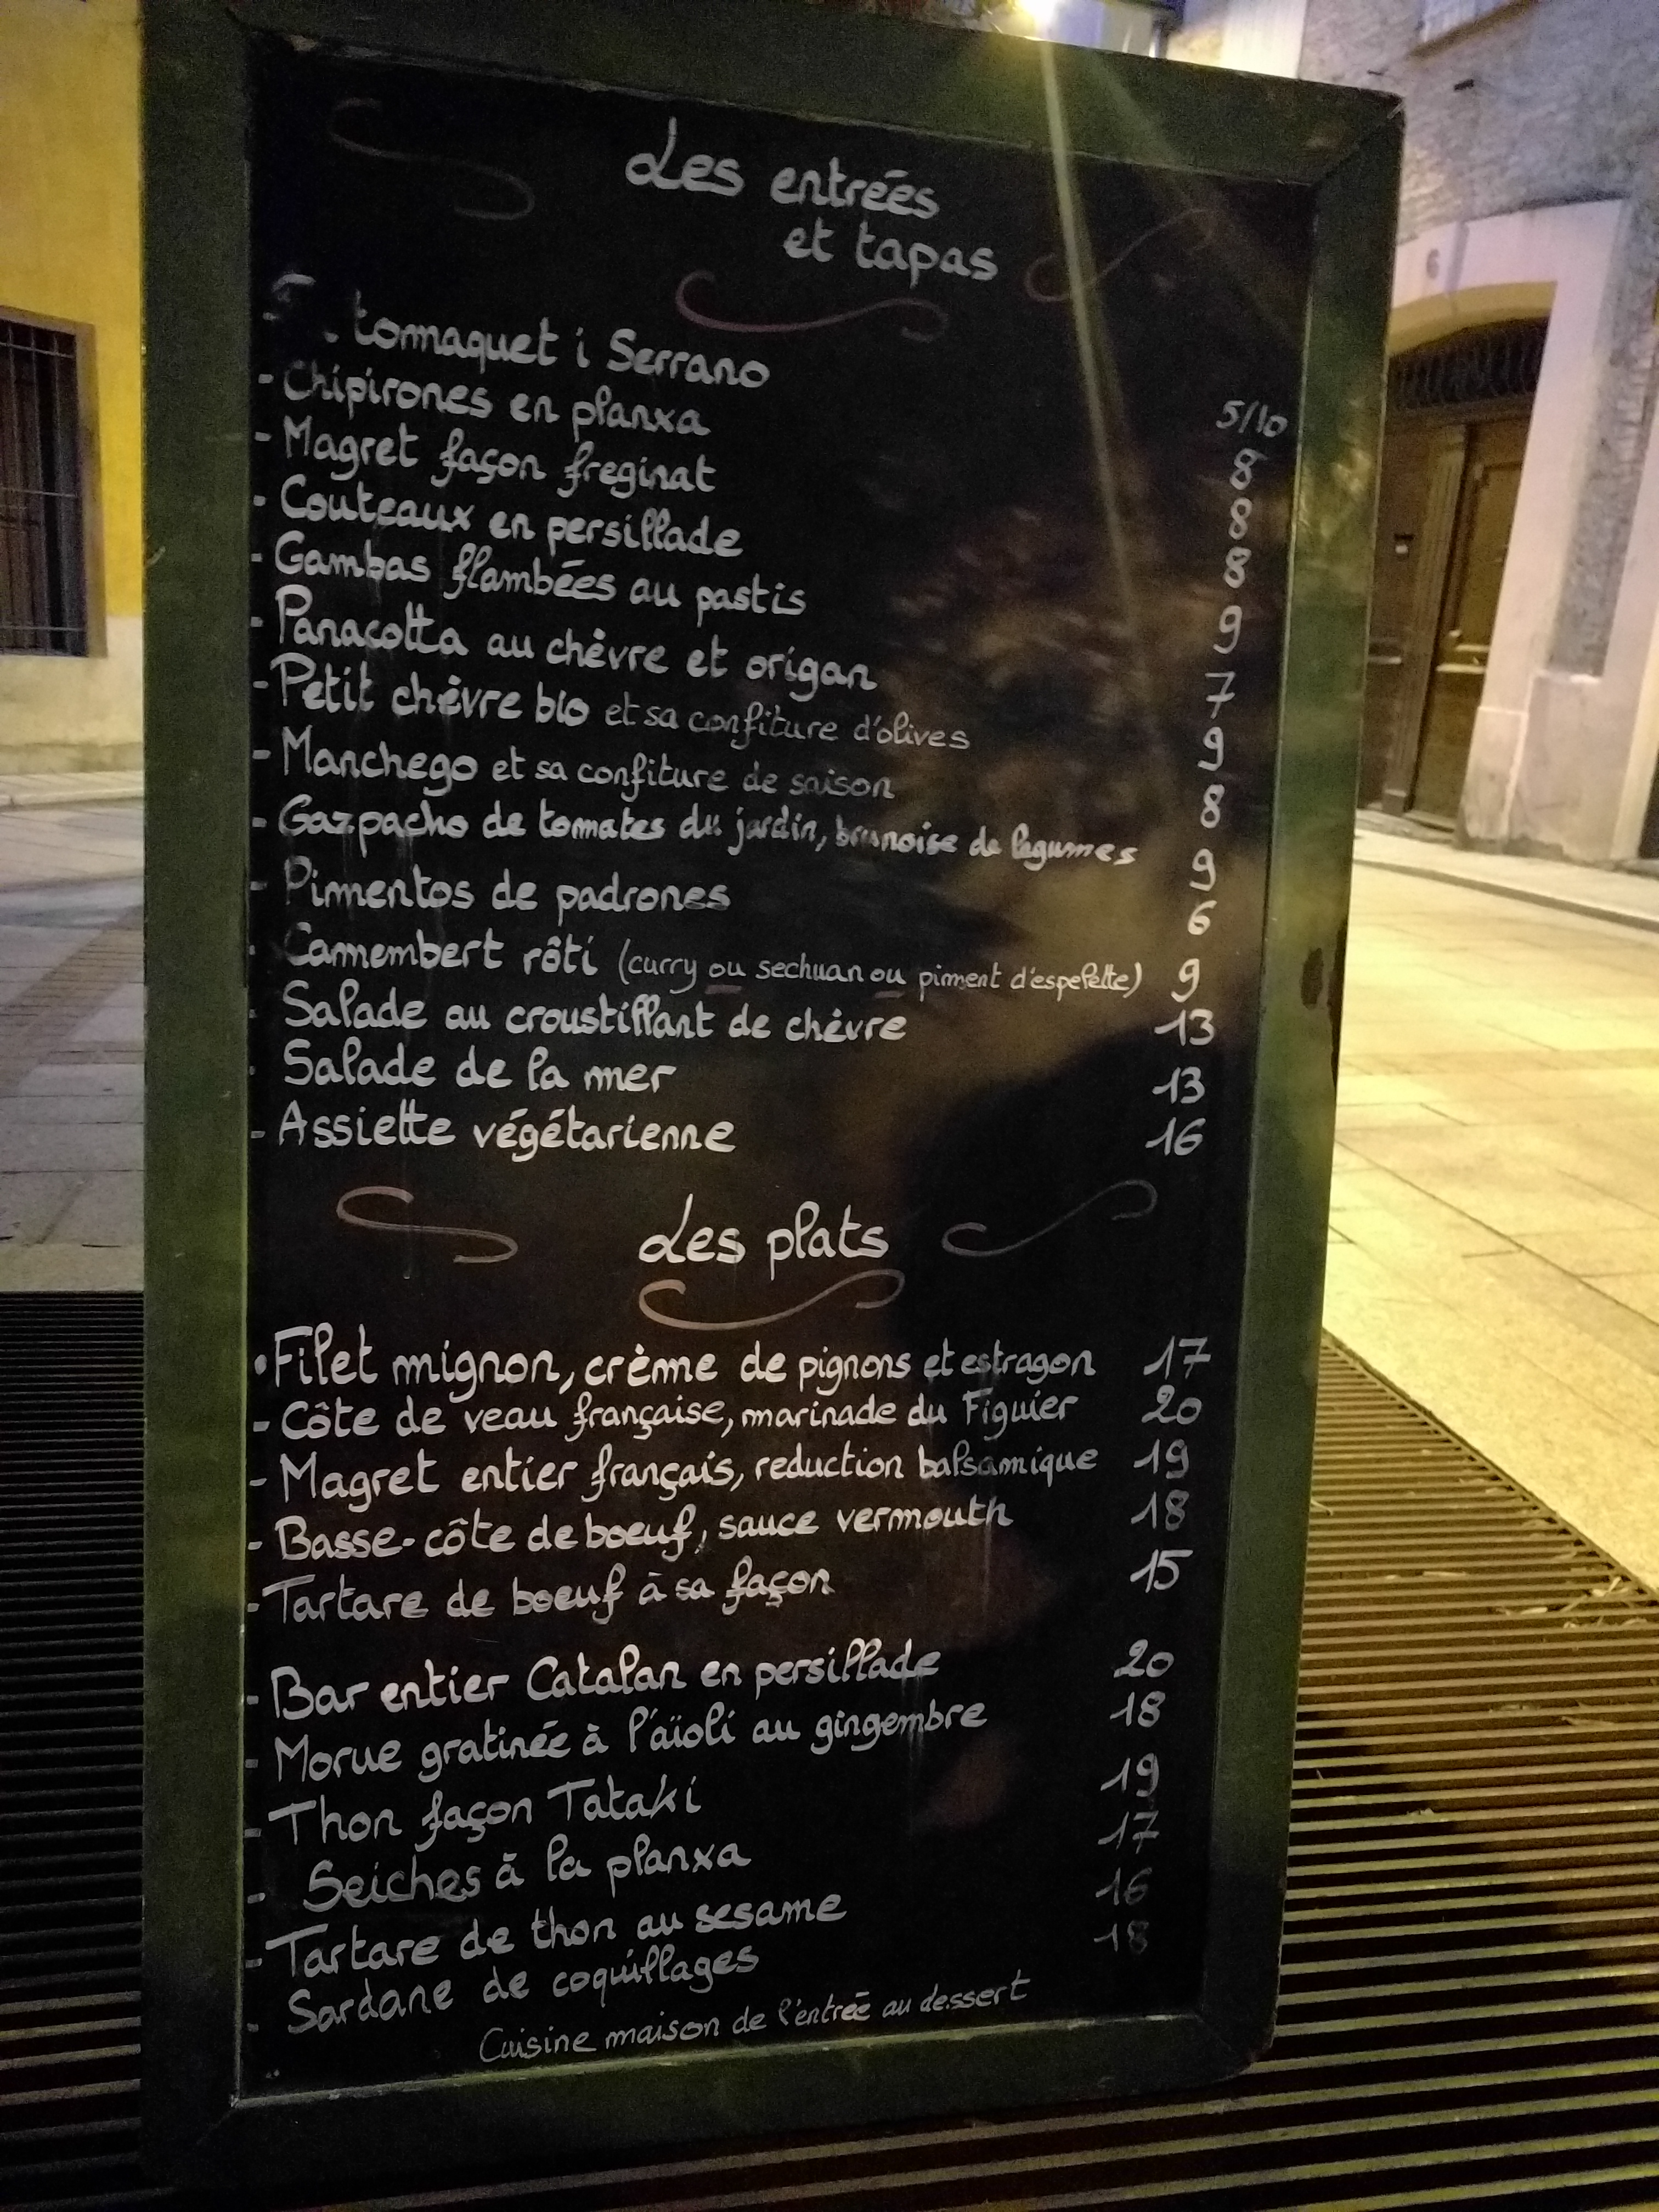 Les entrées
et tapas
tomaquet i Serrano 5/10
- Chipirones en planxa 8
- Magret façon freginat 8
- Couteaux en persillade 8
- Gambas flambées au pastis 9
- Panacotta au chèvre et origan 7
- Petit chèvre bio et sa confiture d'olives 9
- Manchego et sa confiture de saison 8
- Gazpacho de tomates du jardin, brunoise de légumes 9
- Pimentos de padrones 6
- Camembert rôti (curry ou sechuan ou piment d'espelette) 9
- Salade au croustillant de chèvre 13
- Salade de la mer 13
- Assiette végétarienne 16
Les plats
- Filet mignon, crème de pignons et estragon 17
- Côte de veau française, marinade du Figuier 20
- Magret entier français, reduction balsamique 19
- Basse-côte de boeuf, sauce vermouth 18
- Tartare de boeuf à sa façon 15
- Bar entier Catalan en persillade 20
- Morue gratinée à l'aïoli au gingembre 18
- Thon façon Tataki 19
- Seiches à la planxa 17
- Tartare de thon au sesame 16
- Sardane de coquillages 18
Cuisine maison de l'entrée au dessert
6